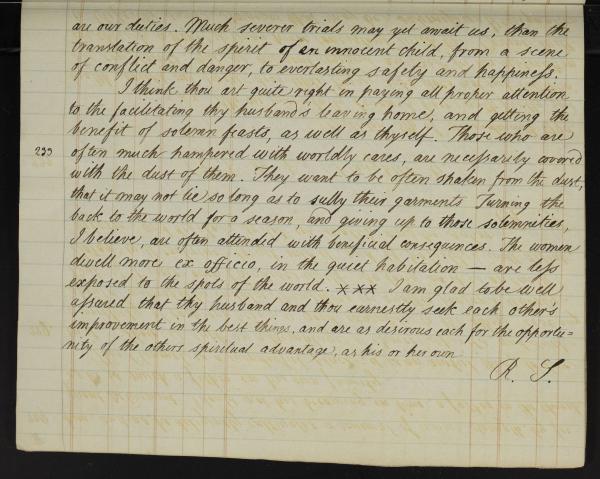 are our duties. Much severer trials may yet await us, than the
translation of the spirit of an innocent child, from a scene
of conflict and danger, to everlasting safety and happiness.
I think thou art quite right in paying all proper attention
to the facilitating thy husband's leaving home, and getting the
benefit of solemn feasts, as well as thyself. Those who are
often much hampered with worldly cares, are necessarily covered
with the dust of them. They want to be often shaken from the dust,
that it may not lie so long as to sully their garments Turning the
back to the world for a season, and giving up to those solemnities,
I believe, are often attended with beneficial consequences. The women
dwell more ex officio, in the quiet habitation — are less
exposed to the spots of the world. x x x I am glad to be well
assured that thy husband and thou earnestly seek each other's
improvement in the best things, and are as desirous each for the opportu=
nity of the others spiritual advantage, as his or her own
R. S.